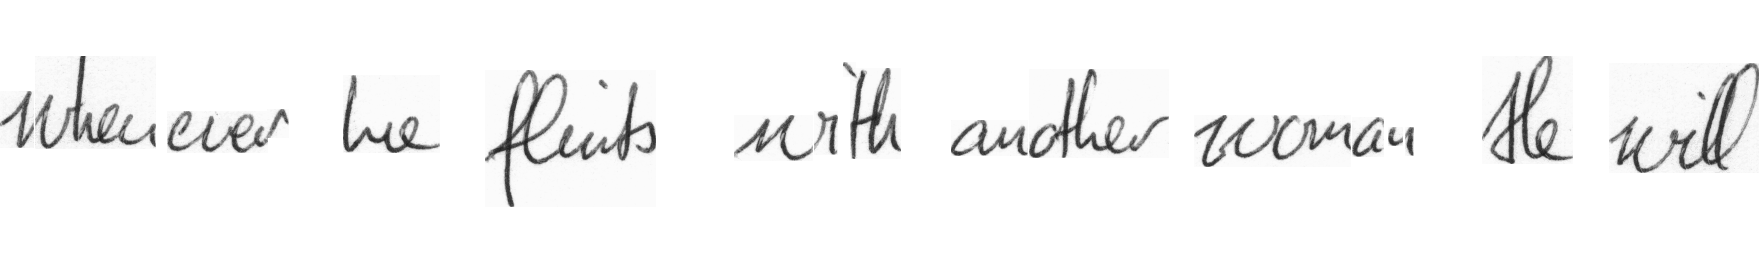 whenever he flirts with another woman she will